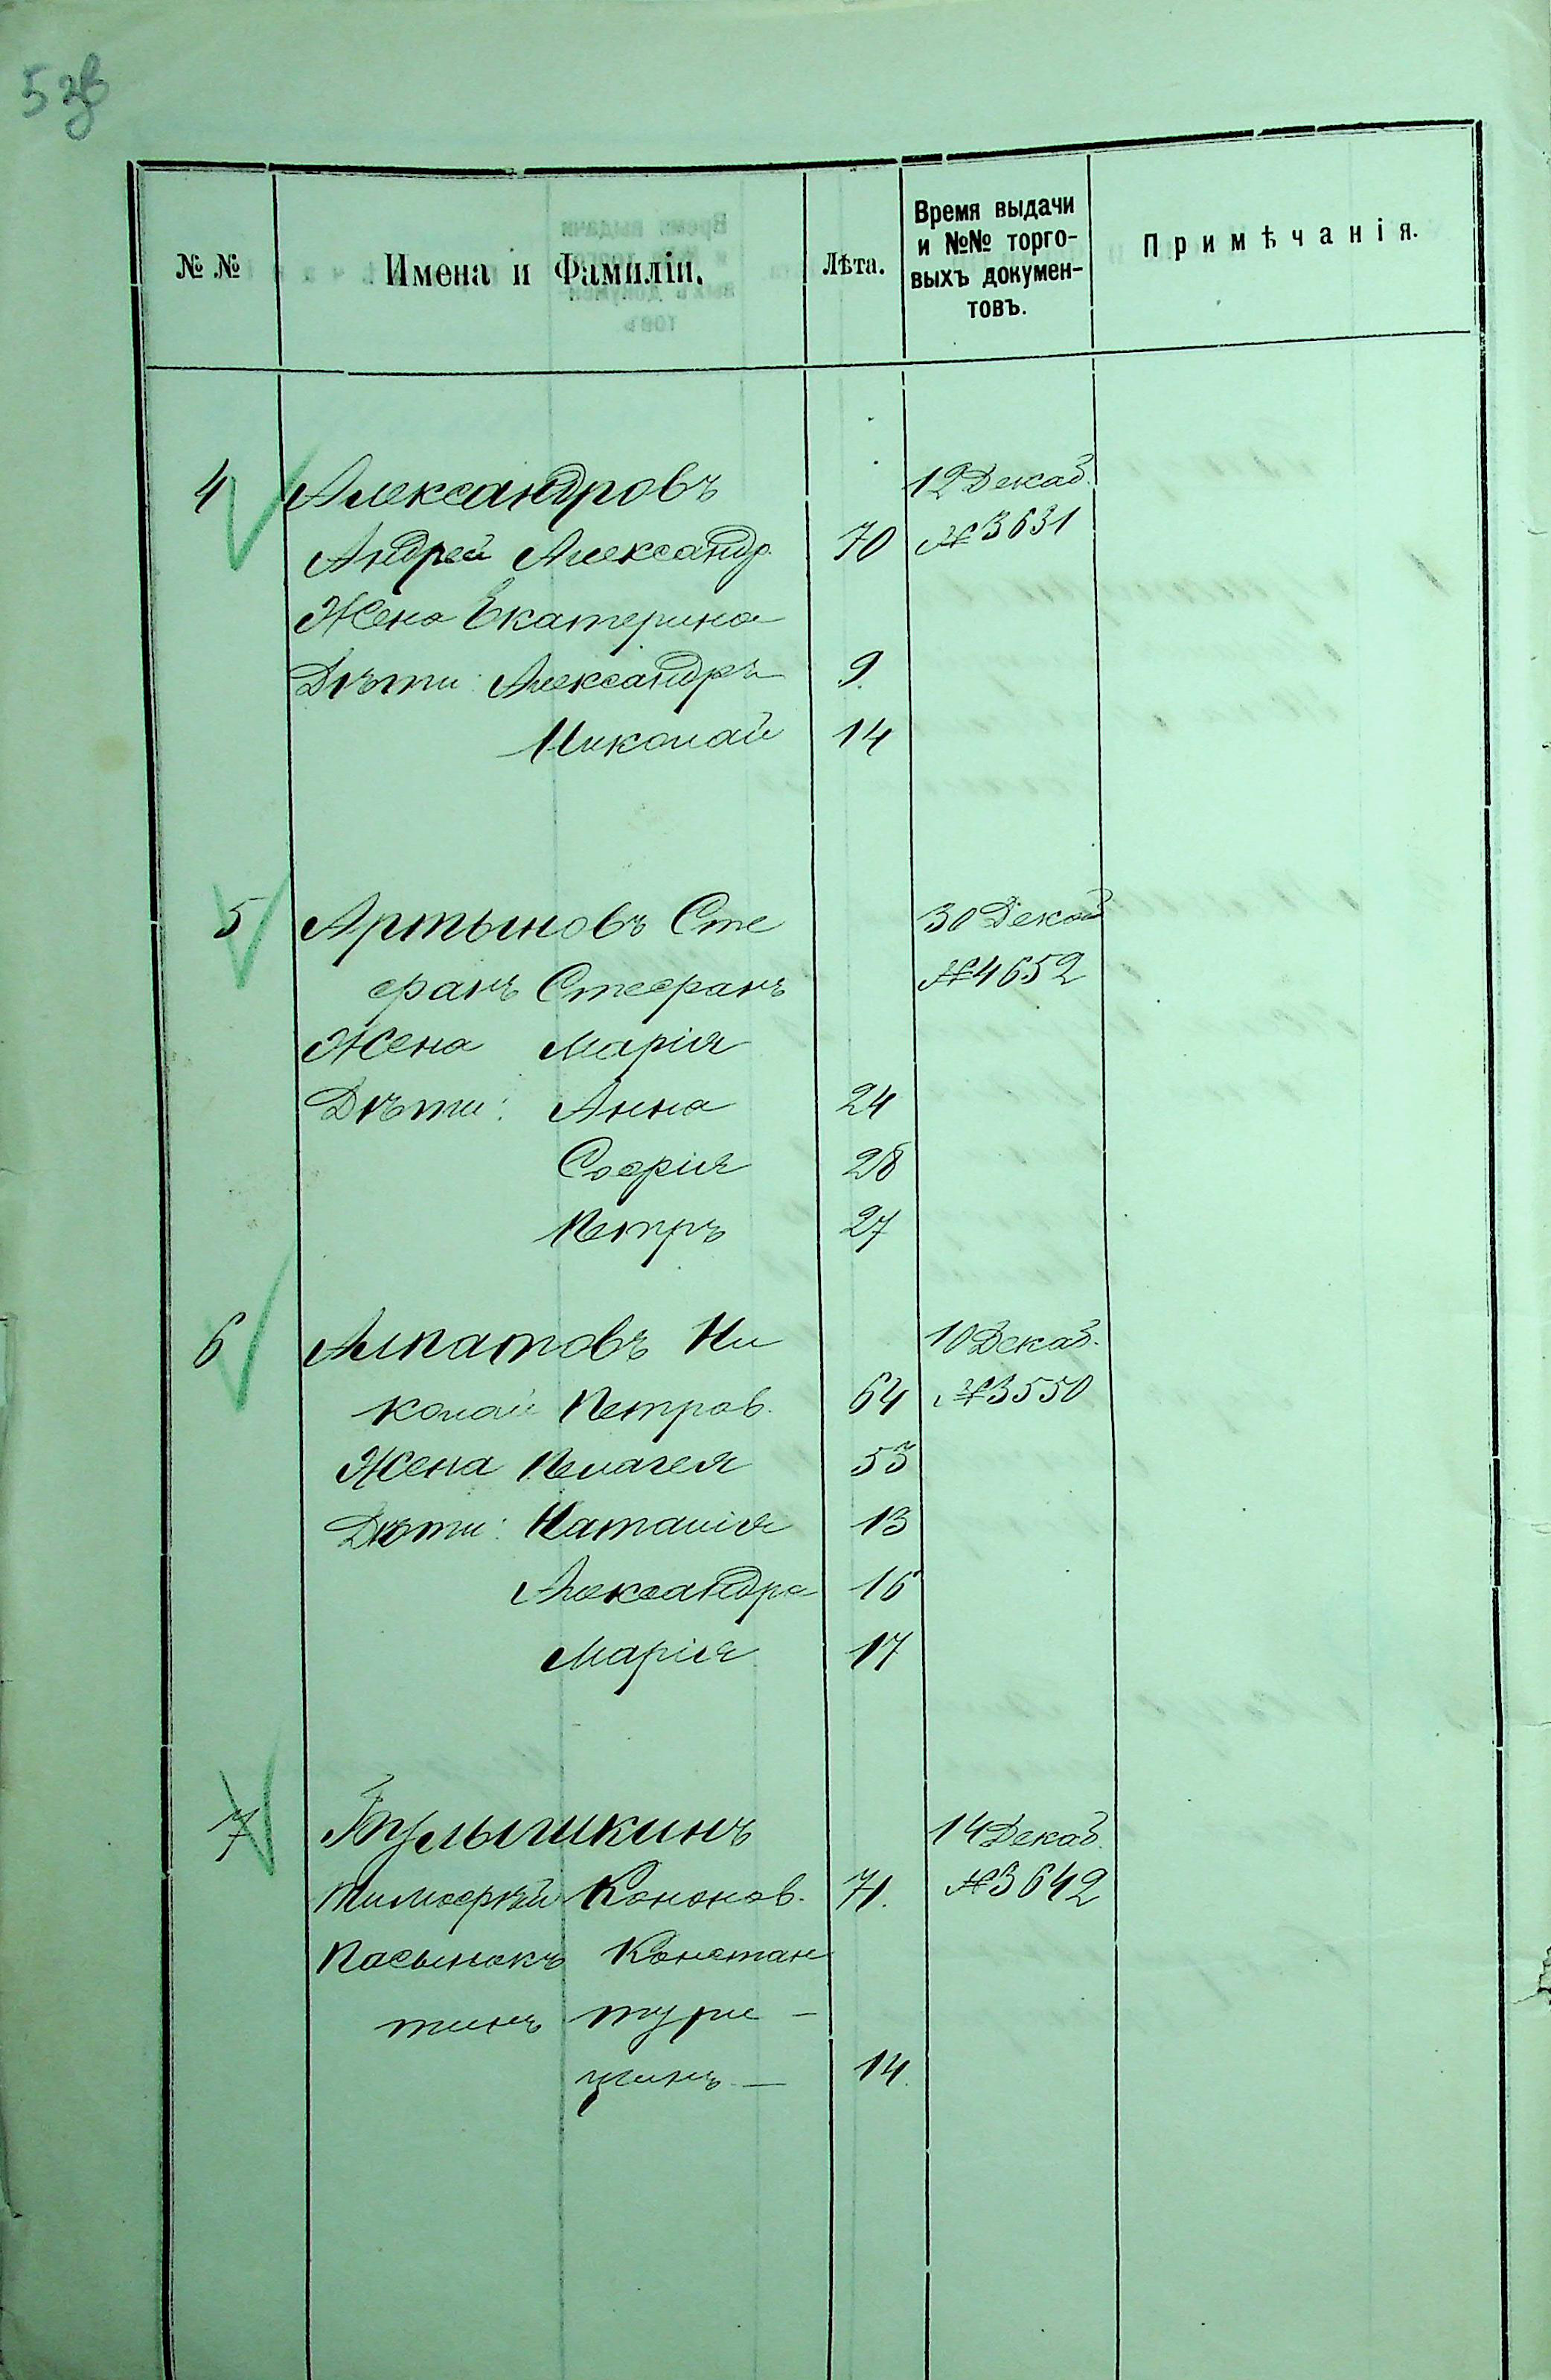 5 зв
№ № Имена и Фамиліи. Лѣта. Время выдачи и №№ торго- выхъ докумен- товъ. Примѣчанія.
4 Александровъ 12 Декаб.
Андрей Александр. 70 № 3631
Жена Екатерина
Дѣти: Александръ 9.
Николай 14
5 Артыновъ Сте 30 Декаб
фанъ Стефанъ № 4652
Жена Марія
Дѣти: Анна 24
Софія 28
Петръ 27
6 Алпатовъ Ни 10 Декаб.
колай Петров. 64 № 3550
Жена Пелагея 53
Дѣти: Наталія 13
Александра 16
Марія 17
7 Булышкинъ 14 Декаб.
Тимофѣй Кононов. 71. № 3642
Пасынокъ Констан
тинъ Тури-
цинъ — 14.